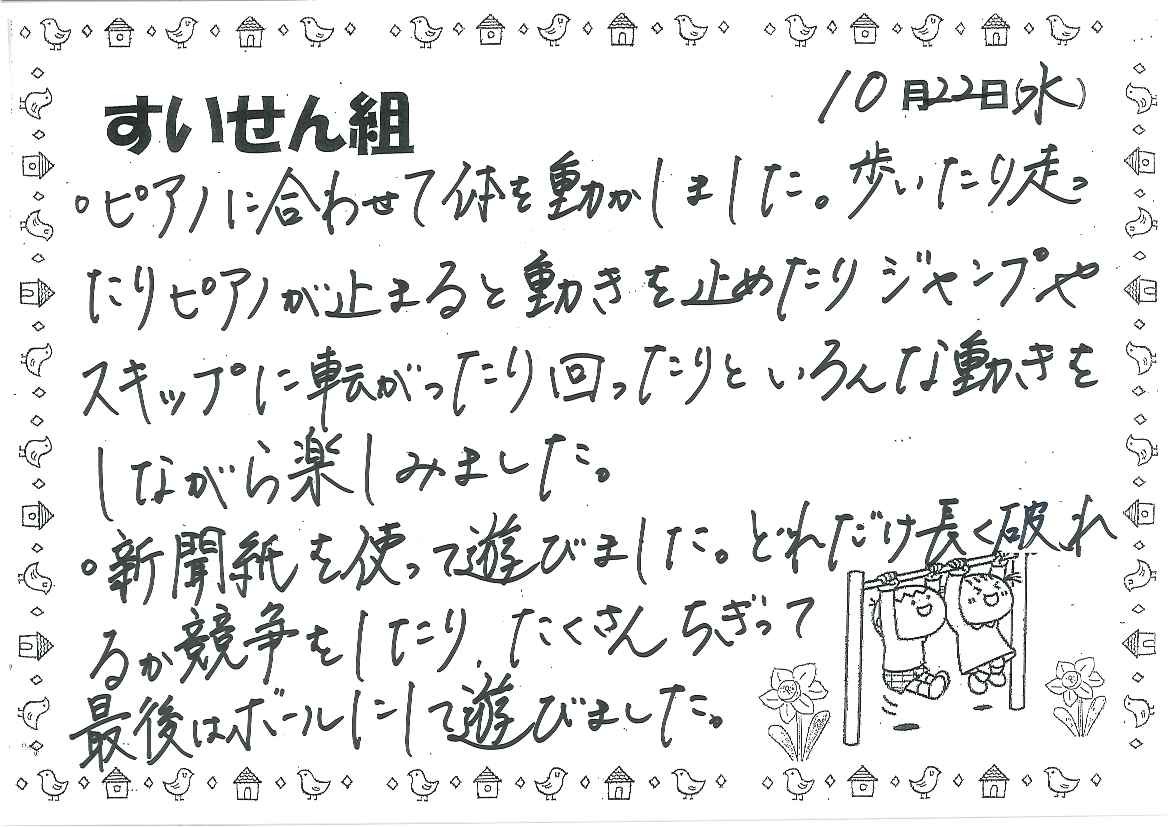 すいせん組
10月22日(水)
。ピアノに合わせて体を動かしました。歩いたり走っ
たりピアノが止まると動きを止めたりジャンプや
スキップに転がったり回ったりといろんな動きを
しながら楽しみました。
。新聞紙を使って遊びました。どれだけ長く破れ
るか競争をしたり、たくさんちぎって
最後はボールにして遊びました。